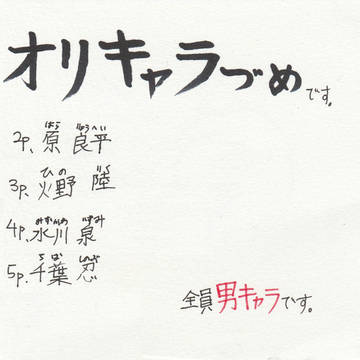 オリキャラづめです。
はら りょうへい
2p、原 良平
ひの りく
3p、火野 陸
いずみ
4p、水川 泉
ちば しのぶ
5p、千葉 忍
全員男キャラです。